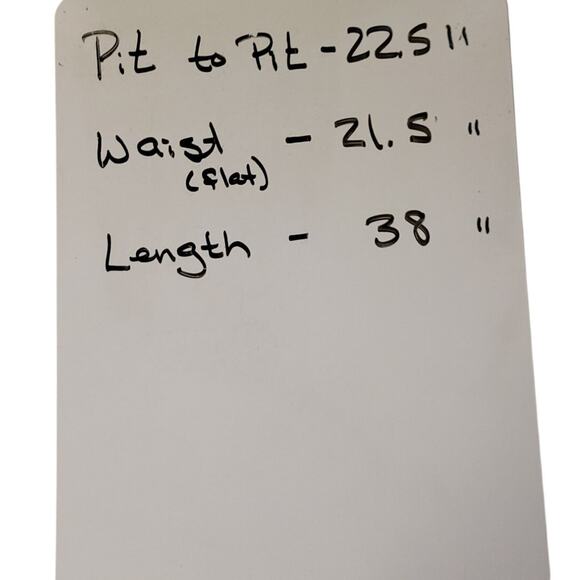 Pit to Pit - 22.5"
Waist - 21.5"
(flat)
Length - 38"